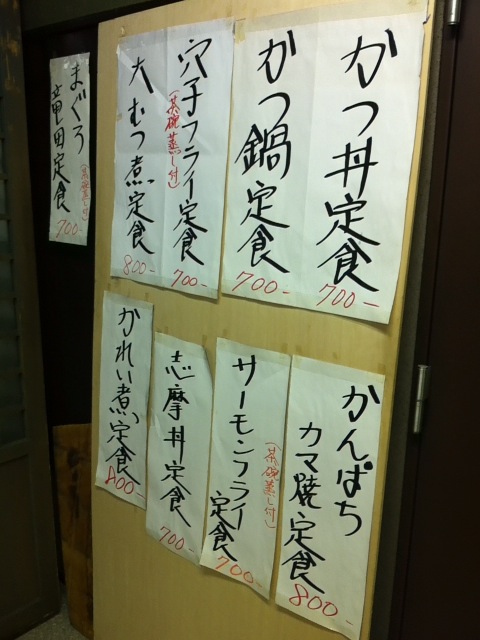 かつ丼定食
700-
かつ鍋定食
700-
穴子フライ定食
(茶碗蒸し付)
700-
大むつ煮定食
800-
まぐろ
竜田定食
(茶碗蒸し付)
700-
かんぱち
カマ焼定食
800-
サーモンフライ
定食
(茶碗蒸し付)
700-
志摩丼定食
700-
かれい煮定食
800-